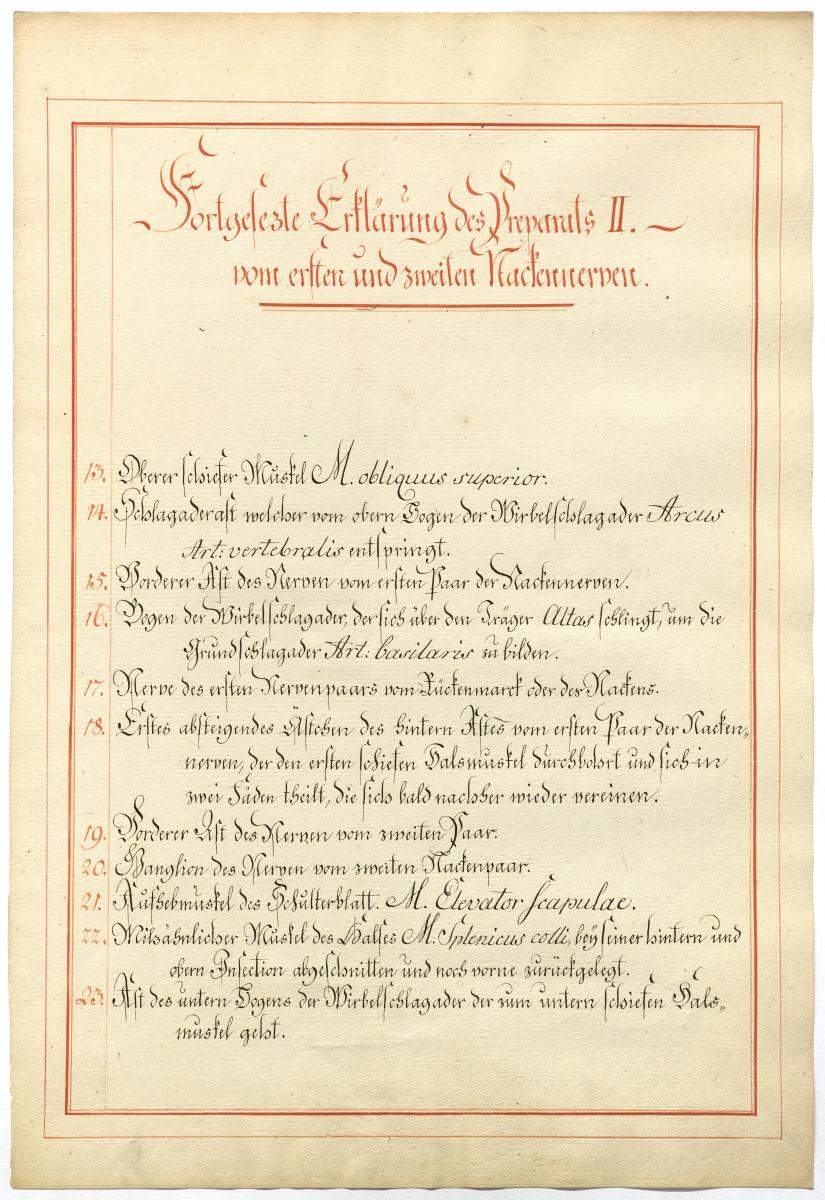 Fortgesezte Erklärung des Preparats II.
vom ersten und zweiten Nackennerven.
13. Oberer schiefer Muskel M. obliquus superior.
14. Schlagaderast welcher vom obern Bogen der Wirbelschlagader Arcus
Art: vertebralis entspringt.
15. Vorderer Ast des Nerven vom ersten Paar der Nackennerven.
16. Bogen der Wirbelschlagader, der sich über den Träger Altas schlingt, um die
Grundschlagader Art: basilaris zu bilden.
17. Nerve des ersten Nervenpaars vom Rückenmarck oder des Nackens.
18. Erstes absteigendes Ästchen des hintern Astes vom ersten Paar der Nacken„
nerven, der den ersten schiefen Halsmuskel durchbohrt und sich in
zwei Fäden theilt, die sich bald nachher wieder vereinen.
19. Vorderer Ast des Nerven vom zweiten Paar.
20. Ganglion des Nerven vom zweiten Nackenpaar.
21. Aufhebmuskel des Schulterblatt. M. Elevator Scapulae.
22. Milzähnlicher Muskel des Halses M. Splenicus colli, bey seiner hintern und
obern Insection abgeschnitten und noch vorne zurückgelegt.
23. Ast des untern Bogens der Wirbelschlagader der zum untern schiefen Hals„
muskel geht.